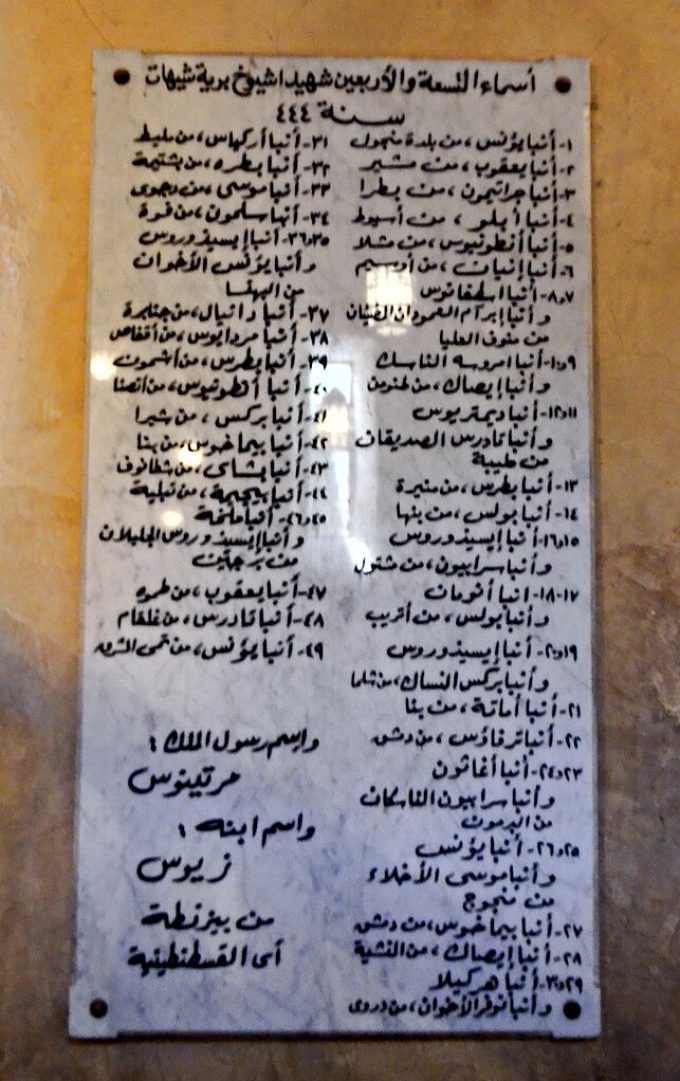 أسماء التسعة والأربعين شهيدا شيوخ برية شيهات
سنة ٤٤٤
١- أنبا يؤنس، من بلدة منجول
٢- أنبا يعقوب، من مشير
٣- أنبا جراتيمون، من بطرا
٤- أنبا أبلو، من أسيوط
٥- أنبا أنطونيوس، من مشلا
٦- أنبا إنيات، من أوسيم
٧و٨- أنبا اسطفانوس
وأنبا إبرآم العمودان الفتيان
من منوف العليا
٩و١٠- أنبا امروسه الناسك
وأنبا إيصاك، من
١١و١٢- أنبا ديمتريوس
وأنبا تادرس الصديقان
من طيبة
١٣- أنبا بطرس، من منيرة
١٤- أنبا بولس، من بنها
١٥و١٦- أنبا إيسيذوروس
وأنبا سرابيون، من شتول
١٧-١٨- انبا أنومان
وأنبا بولس، من أتريب
١٩و٢٠- أنبا إيسيذوروس
وأنبا بركس النساك، من شلما
٢١- أنبا أمانة، من بنا
٢٢- أنبا ترفاؤس، من دمشق
٢٣و٢٤- أنبا أغاثون
وأنبا سرابيون الناسكان
من البرمون
٢٥و٢٦- أنبا يؤنس
وأنبا موسى الأخلاء
من منجوج
٢٧- أنبا بيماخوس، من دمشق
٢٨- أنبا إيصاك، من النشية
٢٩و٣٠- أنبا هركيلا
وأنبا نوفر الأخوان، من دروى
٣١- أنبا أركياس، من مليط
٣٢- أنبا بطره، من بشتيمة
٣٣- أنبا موسى، من دجوى
٣٤- أنبا سلمون، من فوة
٣٥و٣٦- أنبا إيسيذوروس
وأنبا يؤنس الأخوان
من البهنسا
٣٧- أنبا دانيال، من جنابرة
٣٨- أنبا مردايوس، من أقفاص
٣٩- أنبا بطرس، من أشمون
٤٠- أنبا أنطونيوس، من أنصنا
٤١- أنبا بركس، من شبرا
٤٢- أنبا بيماخوس، من بنا
٤٣- أنبا بشاى، من شطانوف
٤٤- أنبا بيجيمة، من تبلية
٤٥و٤٦- أنبا ملخة
وأنبا إيسيذوروس الجليلان
من برجتين
٤٧- أنبا يعقوب، من طموه
٤٨- أنبا تادرس، من غلفام
٤٩- أنبا يؤنس، من تمى الشرق
وإسم رسول الملك :
مرتينوس
واسم ابنه :
زيوس
من بيزنطة
أى القسطنطينية